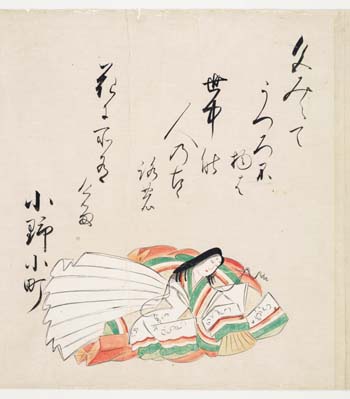 色みえて
うつろふ
物は
世中の
人乃こ
ころの
花にそ有
ける
小野小町